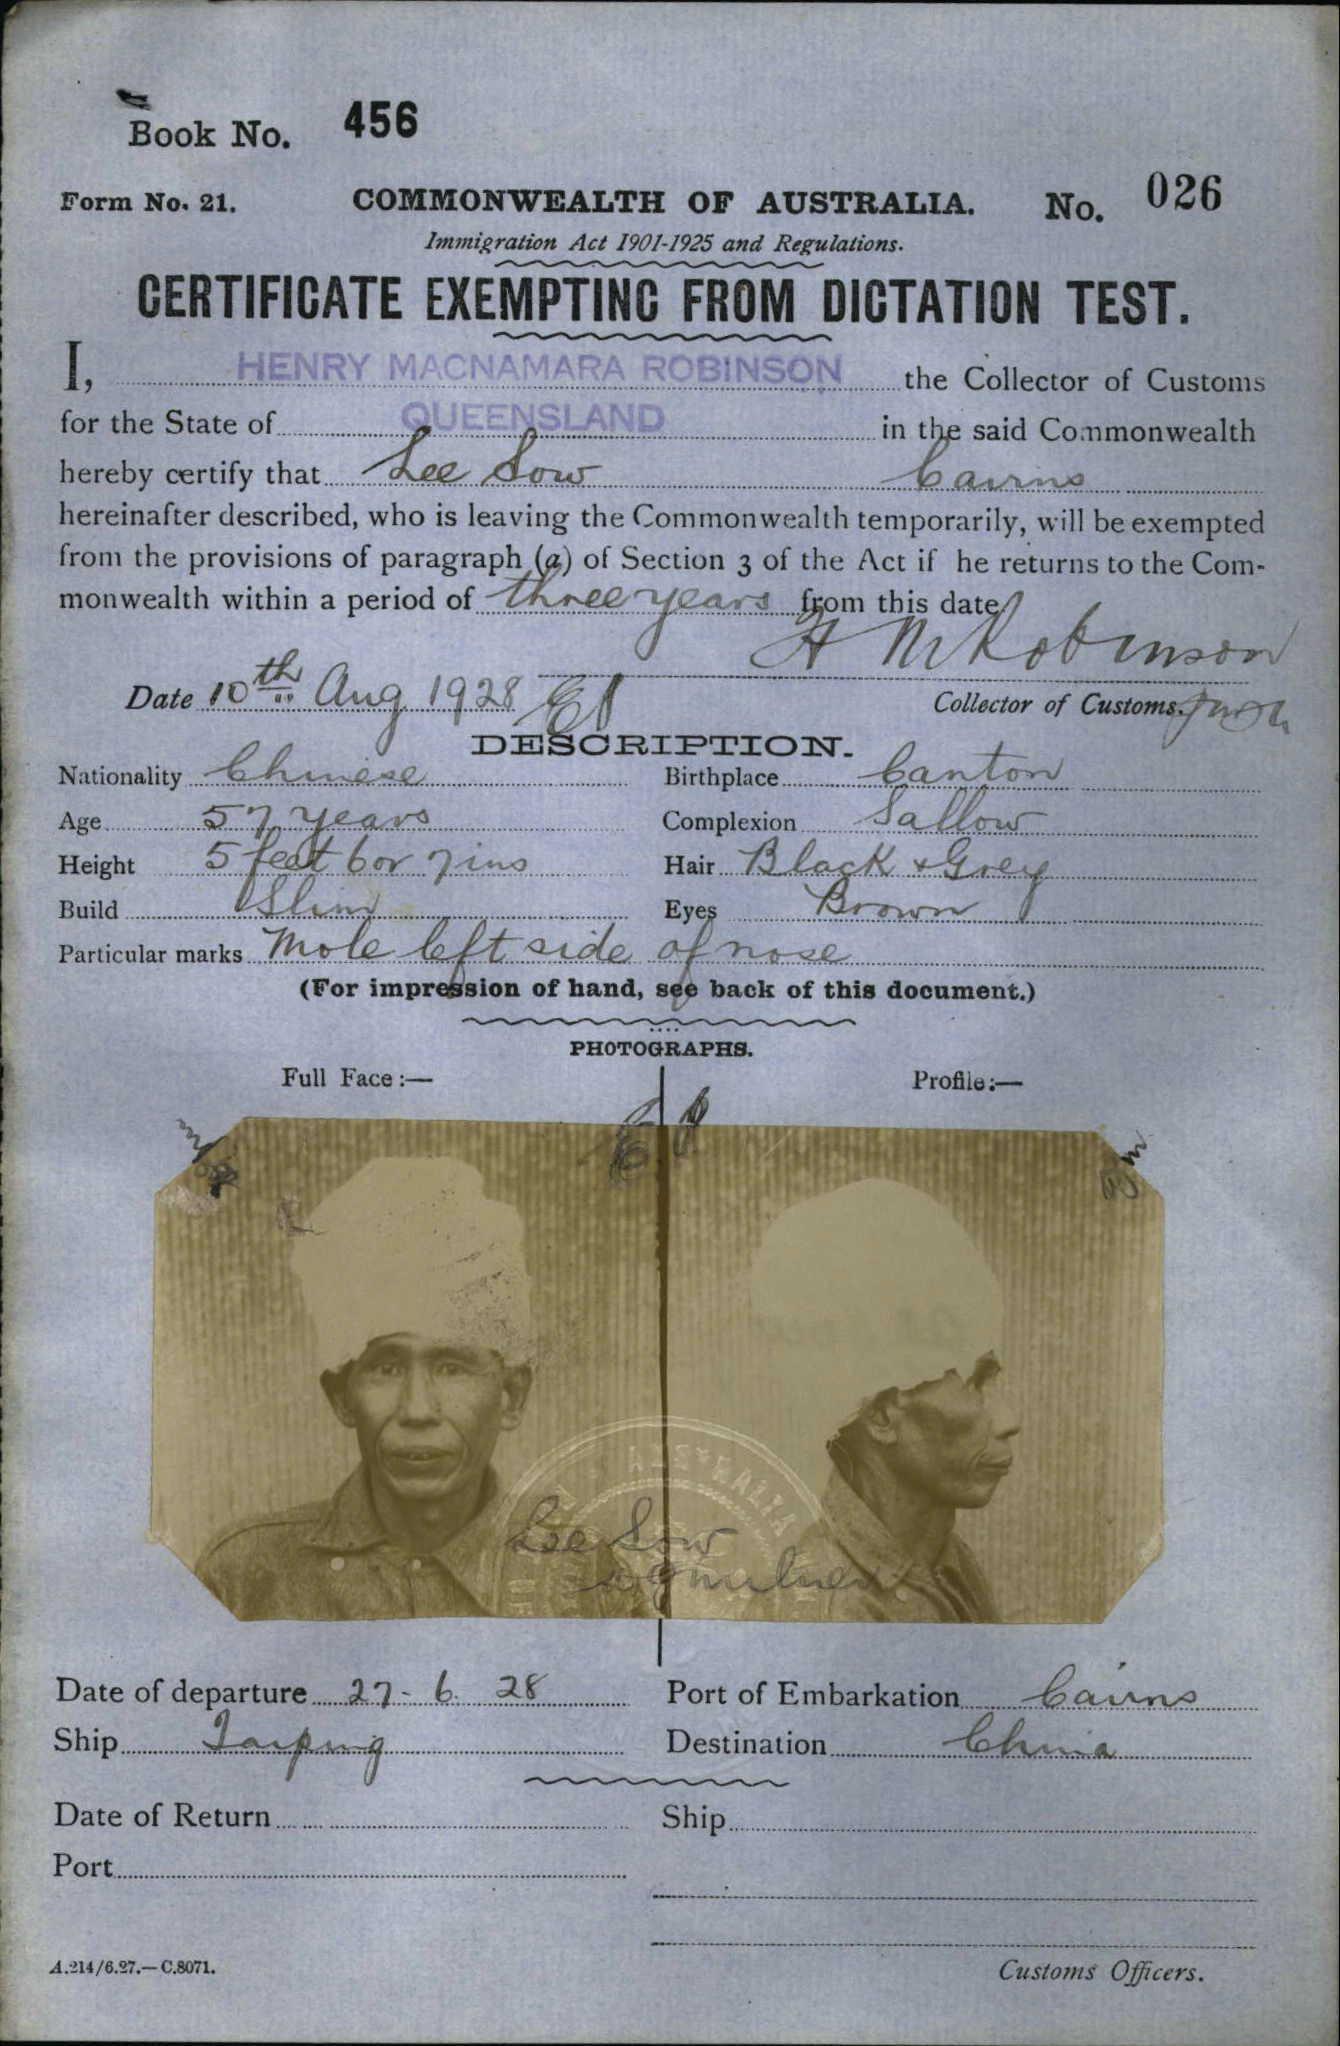 Book No. 456
Form No. 21. COMMONWEALTH OF AUSTRALIA. No. 026
Immigration Act 1901-1925 and Regulations.
CERTIFICATE EXEMPTING FROM DICTATION TEST.
I, HENRY MACNAMARA ROBINSON the Collector of Customs
for the State of QUEENSLAND in the said Commonwealth
hereby certify that Lee Sow Cairns
hereinafter described, who is leaving the Commonwealth temporarily, will be exempted
from the provisions of paragraph (a) of Section 3 of the Act if he returns to the Com-
monwealth within a period of three years from this date
H M Robinson
Date 10th Aug 1928
Collector of Customs.
DESCRIPTION.
Nationality Chinese Birthplace Canton
Age 57 years Complexion Sallow
Height 5 feet 6 or 7 ins Hair Black & Grey
Build Slim Eyes Brown
Particular marks Mole left side of nose
(For impression of hand, see back of this document.)
PHOTOGRAPHS.
Full Face:— Profile:—
AUSTRALIA
Lee Sow
Date of departure 27-6 28 Port of Embarkation Cairns
Ship Taiping Destination China
Date of Return Ship
Port
A.214/6.27.—C.8071. Customs Officers.